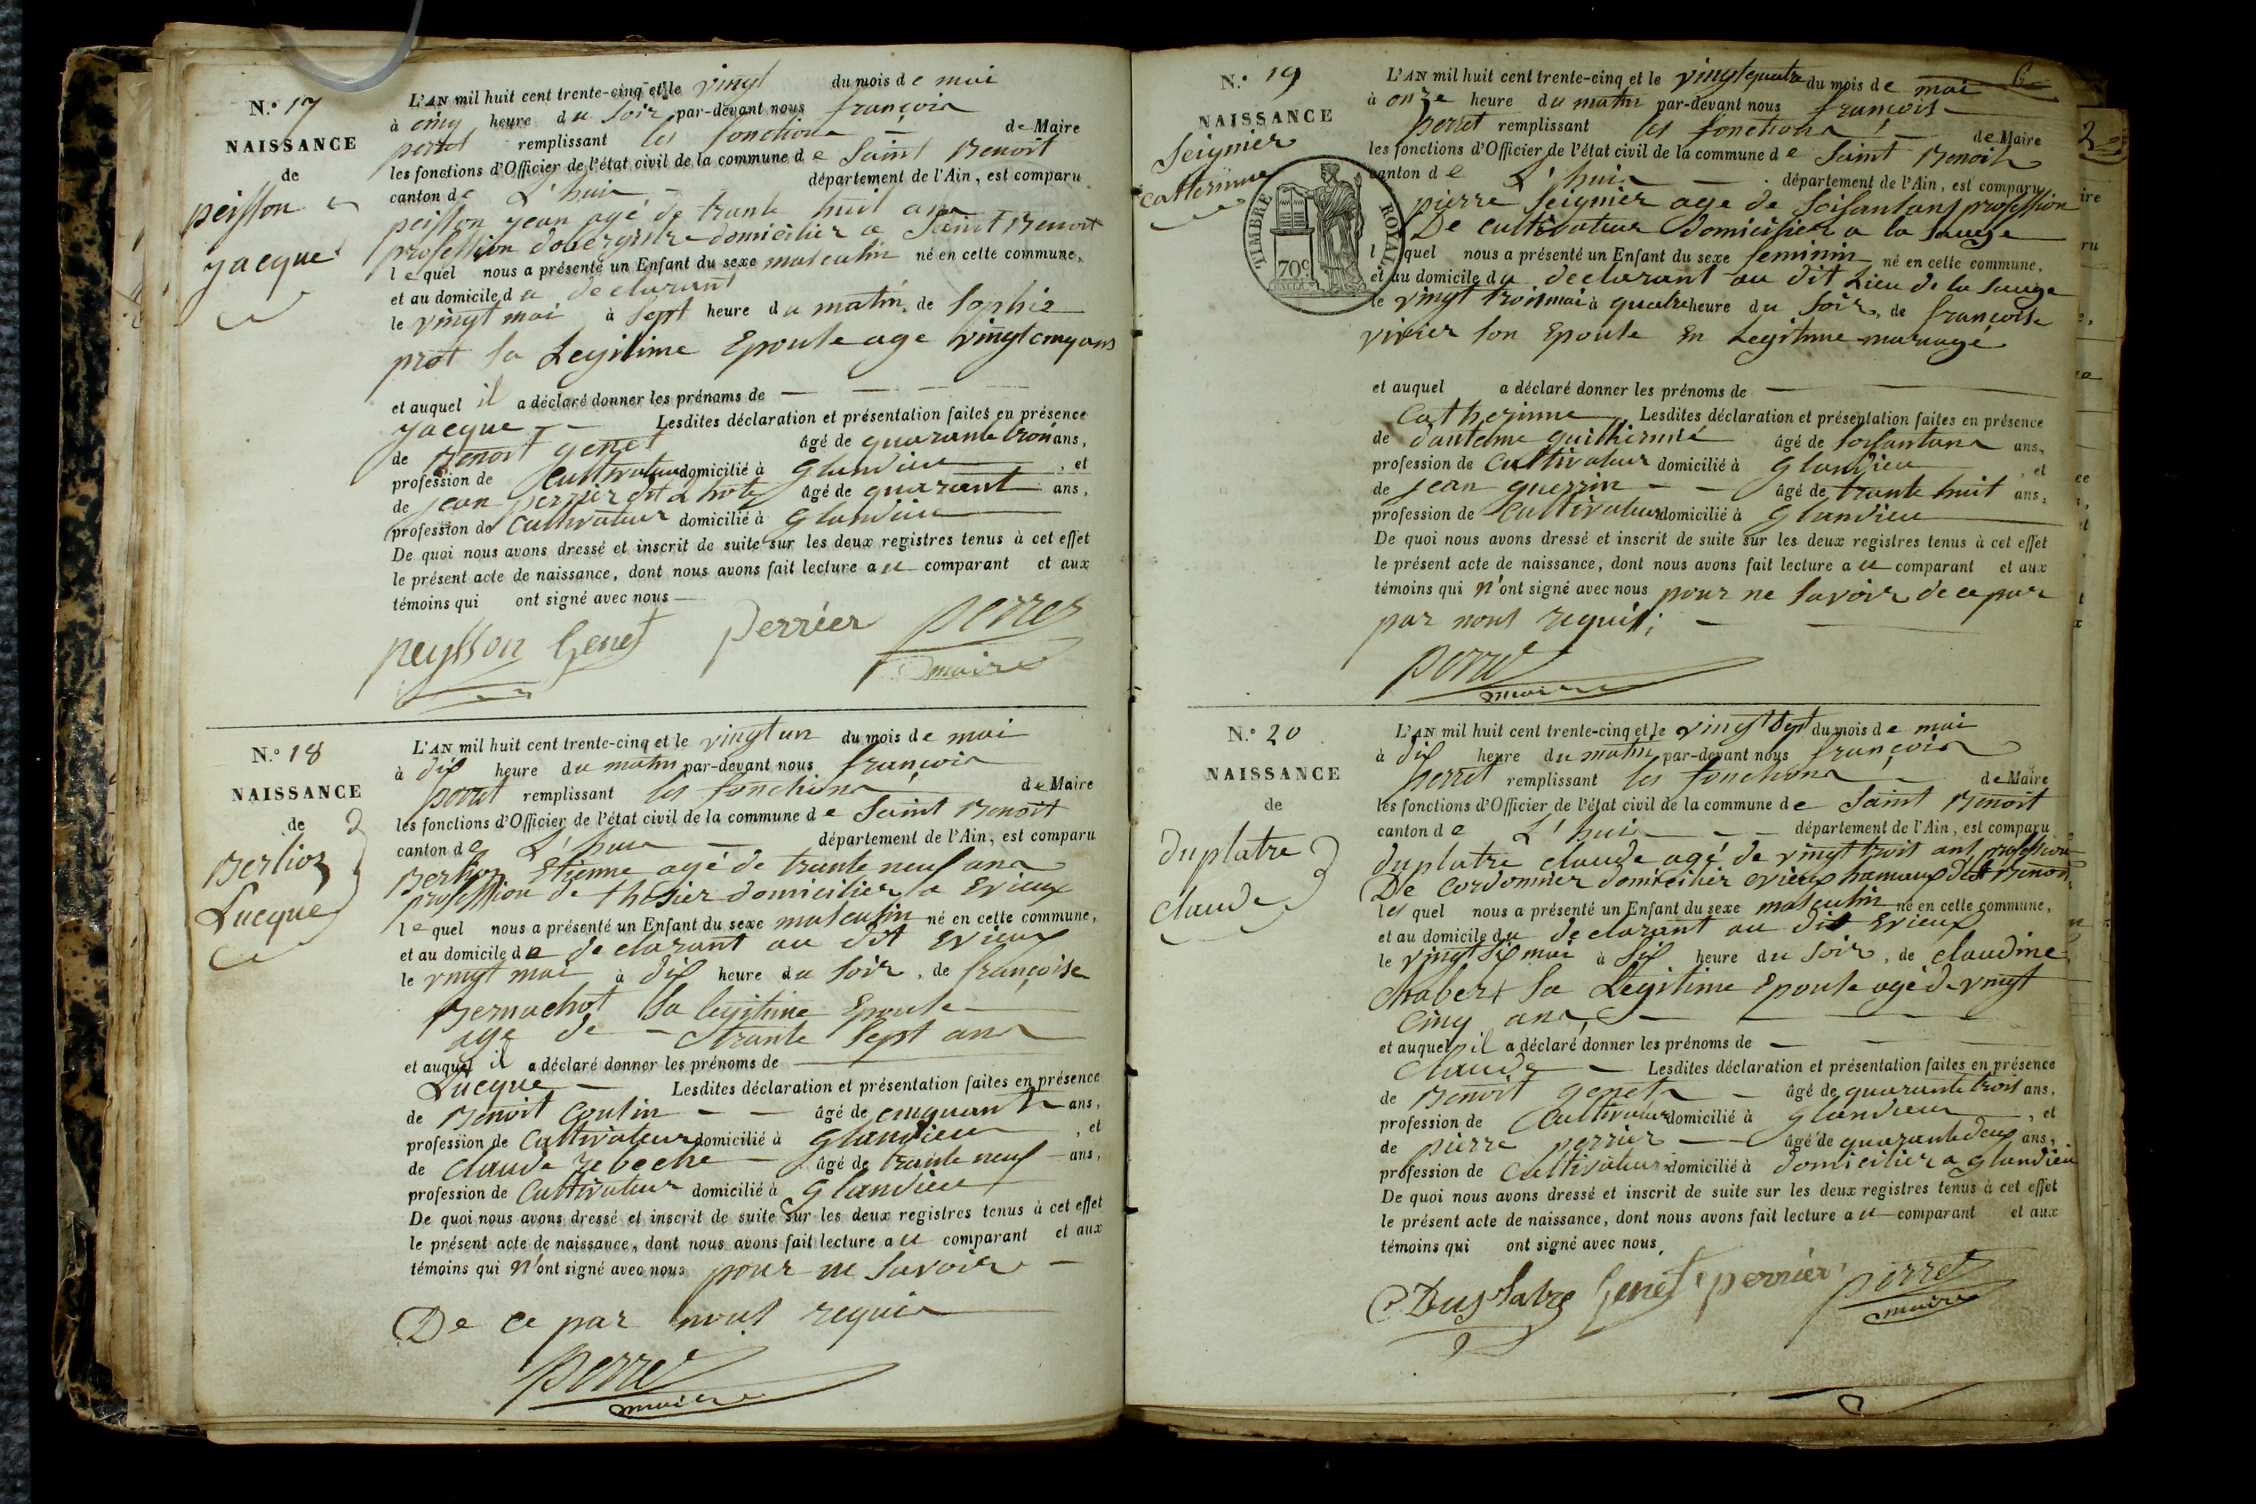 N.° 17
NAISSANCE
de
peisson
yacque
L'AN mil huit cent trente-cinq et le vingt du mois de mai
à cinq heure du soir par-devant nous françois
perret remplissant les fonctions de Maire
les fonctions d'Officier de l'état civil de la commune de Saint Benoit
canton de L'huis département de l'Ain, est comparu
peisson yean agé de trante huit ans
profession dobergiste domicilier a Saint Benoit
lequel nous a présenté un Enfant du sexe masculin né en cette commune,
et au domicile du declarant
le vingt mai à sept heure du matin, de Sophie
prot sa Legitime Epouse age vingt cinq ans
et auquel il a déclaré donner les prénoms de
yacque Lesdites déclaration et présentation faites en présence
de Benoit genet âgé de quarante trois ans,
profession de Cultivateur domicilié à glandieu, et
de jean perrier dit L'hote âgé de quarant ans,
profession de Cultivateur domicilié à glandieu
De quoi nous avons dressé et inscrit de suite sur les deux registres tenus à cet effet
le présent acte de naissance, dont nous avons fait lecture au comparant et aux
témoins qui ont signé avec nous
peysson Genet perrier perret
maire
N.° 18
NAISSANCE
de
Berlioz
Lucque
L'AN mil huit cent trente-cinq et le vingt un du mois de mai
à dix heure du matin par-devant nous françois
perret remplissant les fonctions de Maire
les fonctions d'Officier de l'état civil de la commune de Saint Benoit
canton de L'huis département de l'Ain, est comparu
Berlioz Etienne agé de trante neuf ans
profession de thisier domicilier a Evieux
lequel nous a présenté un Enfant du sexe masculin né en cette commune,
et au domicile du declarant au dit Evieux
le vingt mai à dix heure du soir, de françoise
Bernachot sa legitime Epouse
age de trante sept ans
et auquel il a déclaré donner les prénoms de
Lucque Lesdites déclaration et présentation faites en présence
de Benoit Coutin âgé de cinquante ans,
profession de Cultivateur domicilié à glandieu, et
de Claude reveche âgé de trante neuf ans,
profession de Cultivateur domicilié à glandieu
De quoi nous avons dressé et inscrit de suite sur les deux registres tenus à cet effet
le présent acte de naissance, dont nous avons fait lecture au comparant et aux
témoins qui n'ont signé avec nous pour ne savoir
De ce par nous requis
perret
maire
N.° 19
NAISSANCE
Seignier
catterinne
TIMBRE ROYAL
70c
L'AN mil huit cent trente-cinq et le vingt quatre du mois de mai
à onze heure du matin par-devant nous françois
perret remplissant les fonctions de Maire
les fonctions d'Officier de l'état civil de la commune de Saint Benoit
canton de L'huis département de l'Ain, est comparu
pierre Seignier age de soisantans profession
De cultivateur domicilier a la sauge
lequel nous a présenté un Enfant du sexe feminin né en cette commune,
et au domicile du declarant au dit Lieu de la sauge
le vingt trois mai à quatre heure du soir, de françoise
vivier son Epouse En Legitime mariage
et auquel a déclaré donner les prénoms de
Catherinne Lesdites déclaration et présentation faites en présence
de dantelme guillermié âgé de soisantans ans,
profession de Cultivateur domicilié à glandieu, et
de jean guerrin âgé de trante huit ans,
profession de Cultivateur domicilié à glandieu
De quoi nous avons dressé et inscrit de suite sur les deux registres tenus à cet effet
le présent acte de naissance, dont nous avons fait lecture au comparant et aux
témoins qui n'ont signé avec nous pour ne savoir de ce par
par nous requis;
perret
maire
N.° 20
NAISSANCE
de
duplatre
claude
L'AN mil huit cent trente-cinq et le vingt sept du mois de mai
à dix heure du matin par-devant nous françois
perret remplissant les fonctions de Maire
les fonctions d'Officier de l'état civil de la commune de Saint Benoit
canton de L'huis département de l'Ain, est comparu
duplatre claude agé de vingt trois ans profession
De Cordonnier domicilier evieux hamaux de St Benoit
lequel nous a présenté un Enfant du sexe masculin né en cette commune,
et au domicile du declarant au dit Evieux
le vingt six mai à six heure du soir, de claudine
Chabert sa Legitime Epouse agé de vingt
Cinq ans
et auquel il a déclaré donner les prénoms de
Claude Lesdites déclaration et présentation faites en présence
de Benoit genet âgé de quarante trois ans,
profession de Cultivateur domicilié à glandieu, et
de pierre perrier âgé de quarante deux ans,
profession de Cultivateur domicilié à domicilier a glandieu
De quoi nous avons dressé et inscrit de suite sur les deux registres tenus à cet effet
le présent acte de naissance, dont nous avons fait lecture au comparant et aux
témoins qui ont signé avec nous,
Duplatre Genet perrier perret
maire